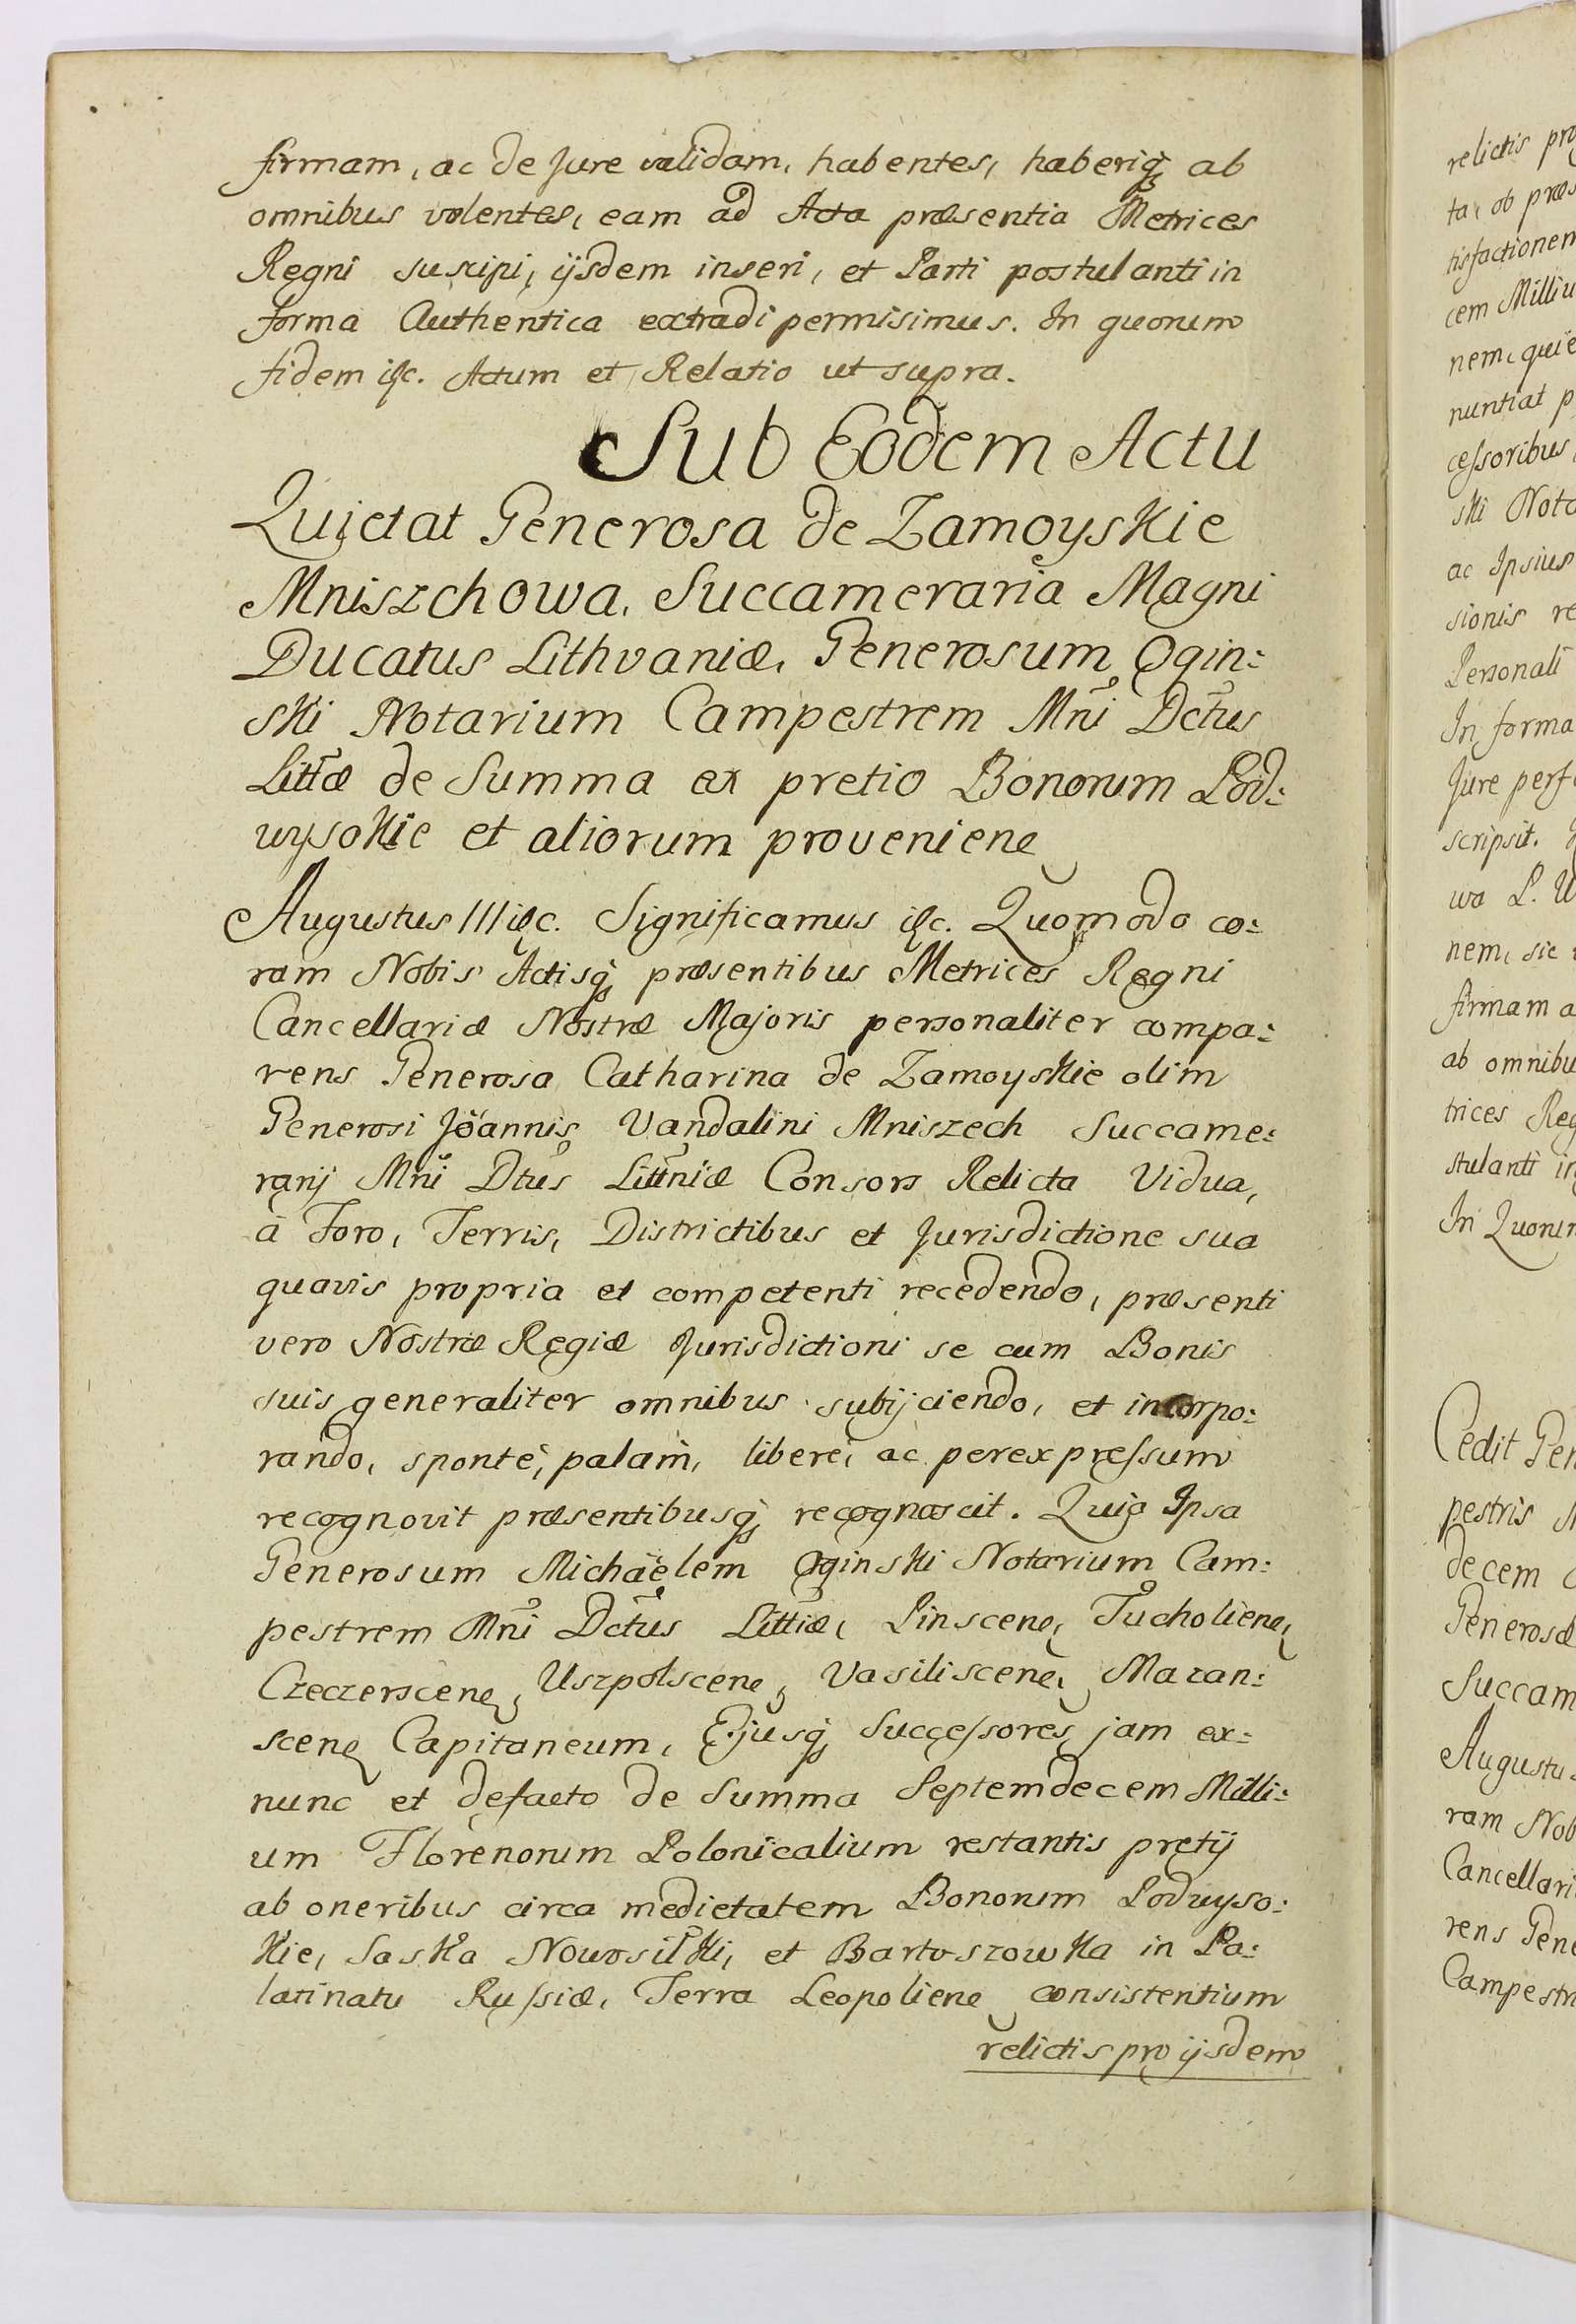 firmam, ac de Jure validam, habentes, haberiq, ab
omnibus volentes, eam ad Acta præsentia Metrices
Regni suscipi, ijsdem inseri, et Parti postulanti in
forma Authentica extradi permisimus. In quorum
fidem &c. Actum et Relatio ut supra.
Sub Eodem Actu
Quietat Generosa de Zamoyskie
Mniszchowa, Succameraria Magni
Ducatus Lithvaniæ, Generosum Ogin:
ski Notarium Campestrem Mni Dctus
Littæ de Summa ex pretio Bonorum Pod:
wysokie et aliorum provenien
Augustus III &c. Significamus &c. Quomodo co:
ram Nobis Actisq, præsentibus Metrices Regni
Cancellariæ Nostræ Majoris personaliter compa:
rens Generosa Catharina de Zamoyskie olim
Generosi Joannis Vandalini Mniszech Succame:
rarij Mni Dtus Littniæ Consors Relicta Vidua,
à Foro, Terris, Districtibus et Jurisdictione sua
quavis propria et competenti recedendo, præsenti
vero Nostræ Regiæ Jurisdictioni se cum Bonis
suis generaliter omnibus subijciendo, et incorpo:
rando, sponte, palam, libere, ac per expressum
recognovit præsentibusq, recognoscit. Quia Ipsa
Generosum Michaëlem Oginski Notarium Cam:
pestrem Mni Dctus Littiæ, Pinscen, Tucholien,
Czeczerscen, Uszpolscen, Vasiliscen, Mazan:
scen Capitaneum, Ejusq, Successores jam ex:
nunc et defacto de Summa Septemdecem Milli:
um Florenorum Polonicalium restantis pretij
ab oneribus circa medietatem Bonorum Podwyso:
kie, Saska Nowosiłki, et Bartoszowka in Pa:
latinatu Russiæ, Terra Leopolien consistentium
relictis pro ijsdem
relictis pro
ta, ob præs
tisfactionem
cem Milliu
nem, quie
nuntiat p
cessoribus
ski Nota
ac Ipsius
sionis re
Personali
In forma
Jure perf
scripsit.
wa P. W
nem, sic
firmam a
ab omnibu
trices Reg
stulanti in
In Quorum
Cedit Gen
pestris
decem
Generosæ
Succam
Augustu
ram Nob
Cancellari
rens Gene
Campestri